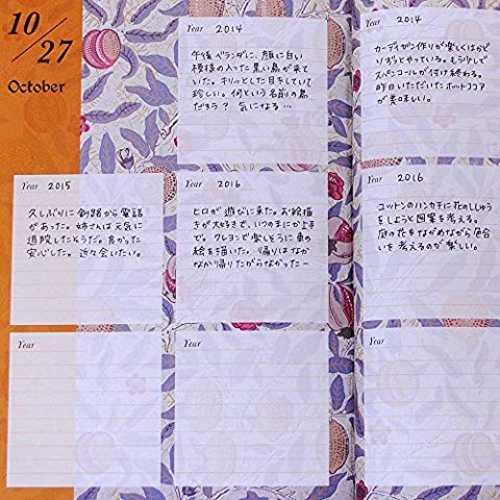 10/27
October
Year 2014
午後ベランダに、顔に白い
模様の入った黒い鳥が来て
いた。キリッとした目をしていて
珍しい。何という名前の鳥
だろう? 気になる…
Year 2014
カーディガン作りが楽しくはらど
りずつやっている。もう少しで
スパンコールが付け終わる。
昨日いただいたホットココア
が美味しい。
Year 2015
久しぶりに釧路から電話
があった。姉さんは元気に
退院したそうだ。良かった
安心した。近々会いたい。
Year 2016
ヒロが遊びに来た。お絵描
きが大好きで、いつのまにか上手
で。クレヨンで楽しそうに車の
絵を描いた。帰りはなか
なか帰りたがらなかったー
Year 2016
コットンのハンカチに花のししゅう
をしようと図案を考える。
庭の花をながめながら色合
いを考えるのが楽しい。
Year
Year
Year